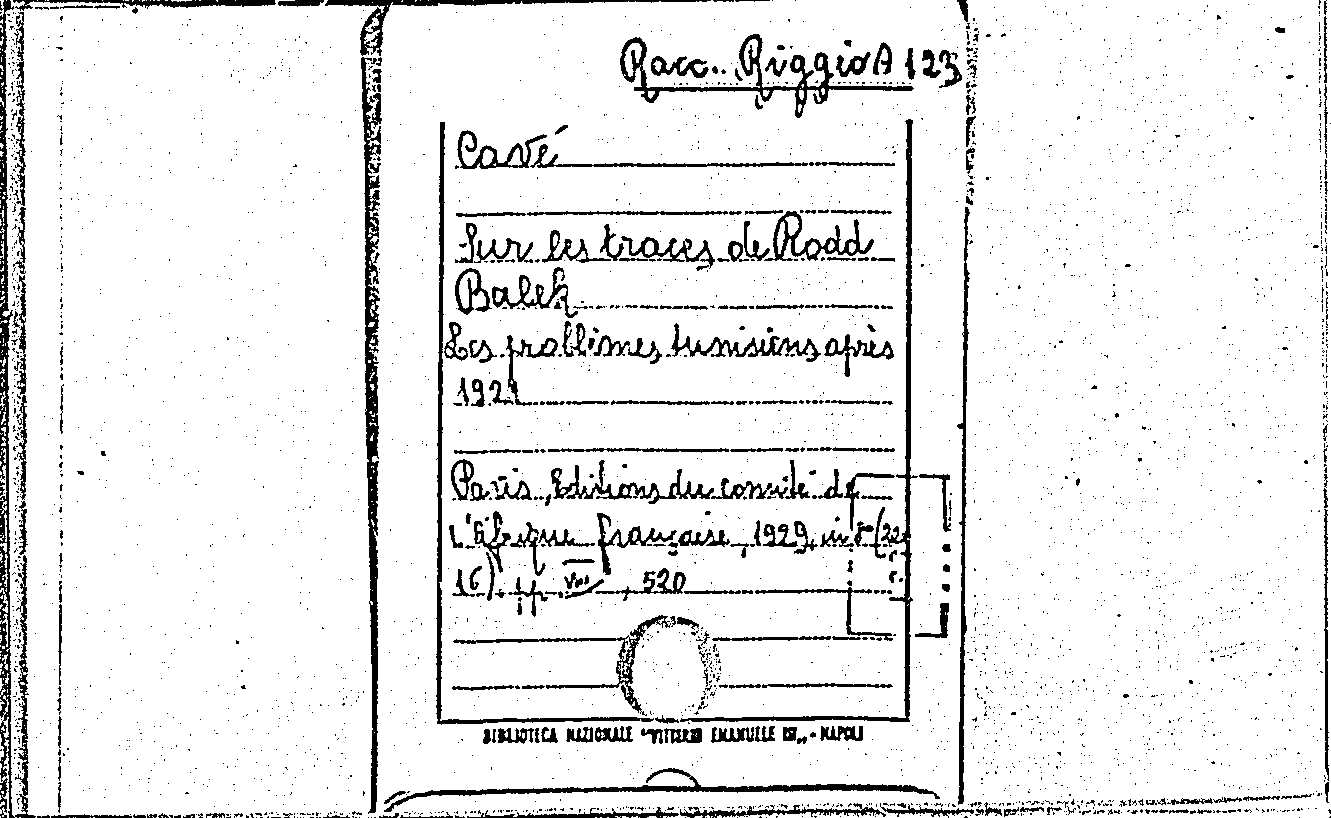 Racc. Riggio A 123
Cavé
Sur les traces de Rodd
Balek
Les problèmes tunisiens après
1921
Paris, Editions du comité de
l'Afrique française, 1929, in 8°
16). pp. VIII, 520
BIBLIOTECA NAZIONALE "VITTORIO EMANUELE III" - NAPOLI